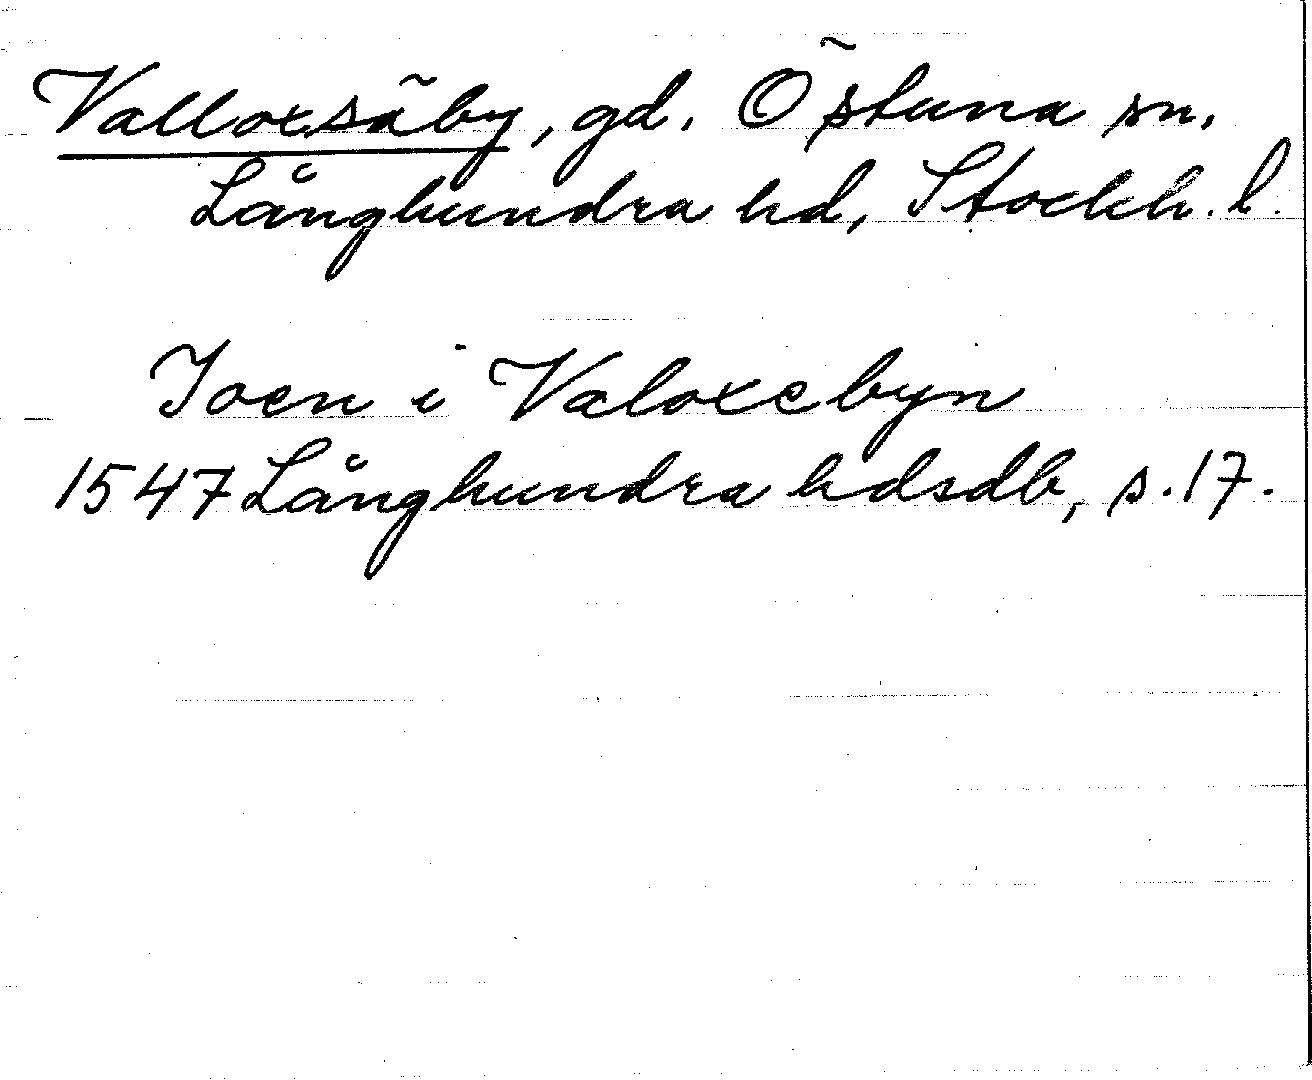 Valloxsäby, gd. Östuna sn,
Långhundra hd, Stockh. l.
Joen i Valoxebyn
1547 Långhundra hdsdb, s. 17.